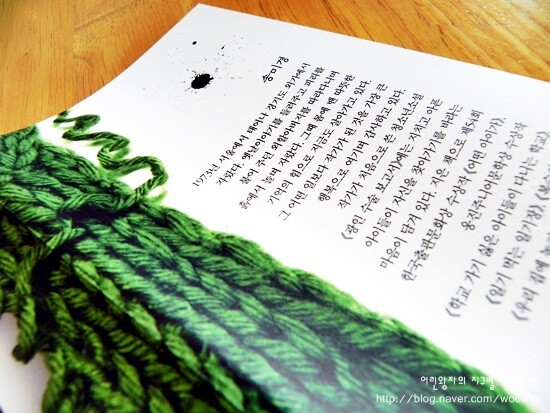 송미경
1973년 서울에서 태어나 경기도 외가에서
자랐다. 옛날이야기를 들려주고, 피리를
불어 주던 외할아버지를 따라다니며
흙에서 놀며 자랐다. 그때 몸에 밴 따뜻한
기억의 힘으로 지금도 살아가고 있다.
그 어떤 일보다 작가가 된 것을 가장 큰
행복으로 여기며 감사하고 있다.
작가가 처음으로 쓴 청소년소설
《광인 수술 보고서》에는 지치고 아픈
아이들이 자신을 찾아가기를 바라는
마음이 담겨 있다. 지은 책으로 제54회
한국출판문화상 수상작 《어떤 아이가》,
웅진주니어문학상 수상작
《학교 가기 싫은 아이들이 다니는 학교》
《일기 먹는 일기장》 《복
《우리 집에
어린왕자의 지구별
http://blog.naver.com/woo